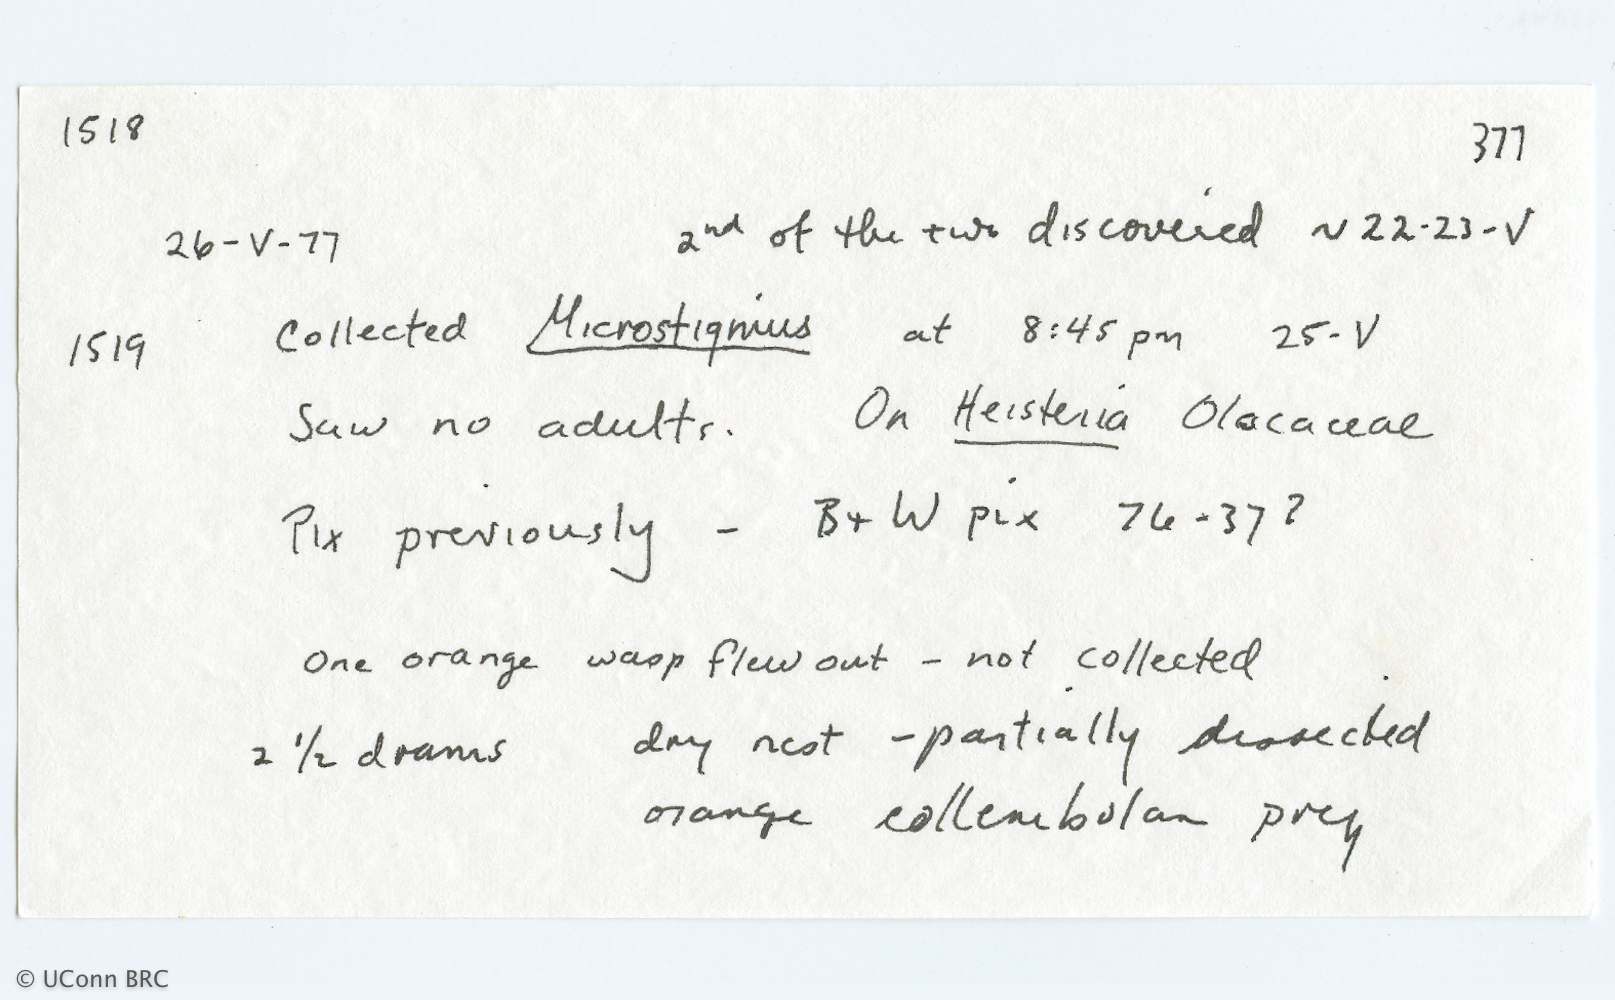 1518
377
26-V-77 2nd of the two discovered ~22-23-V
1519 Collected Microstigmus at 8:45 pm 25-V
Saw no adults. On Heisteria Olacaceae
Pix previously - B+W pix 76-37?
One orange wasp flew out - not collected
2 1/2 drams dry nest - partially dissected
orange collembolan prey
© UConn BRC